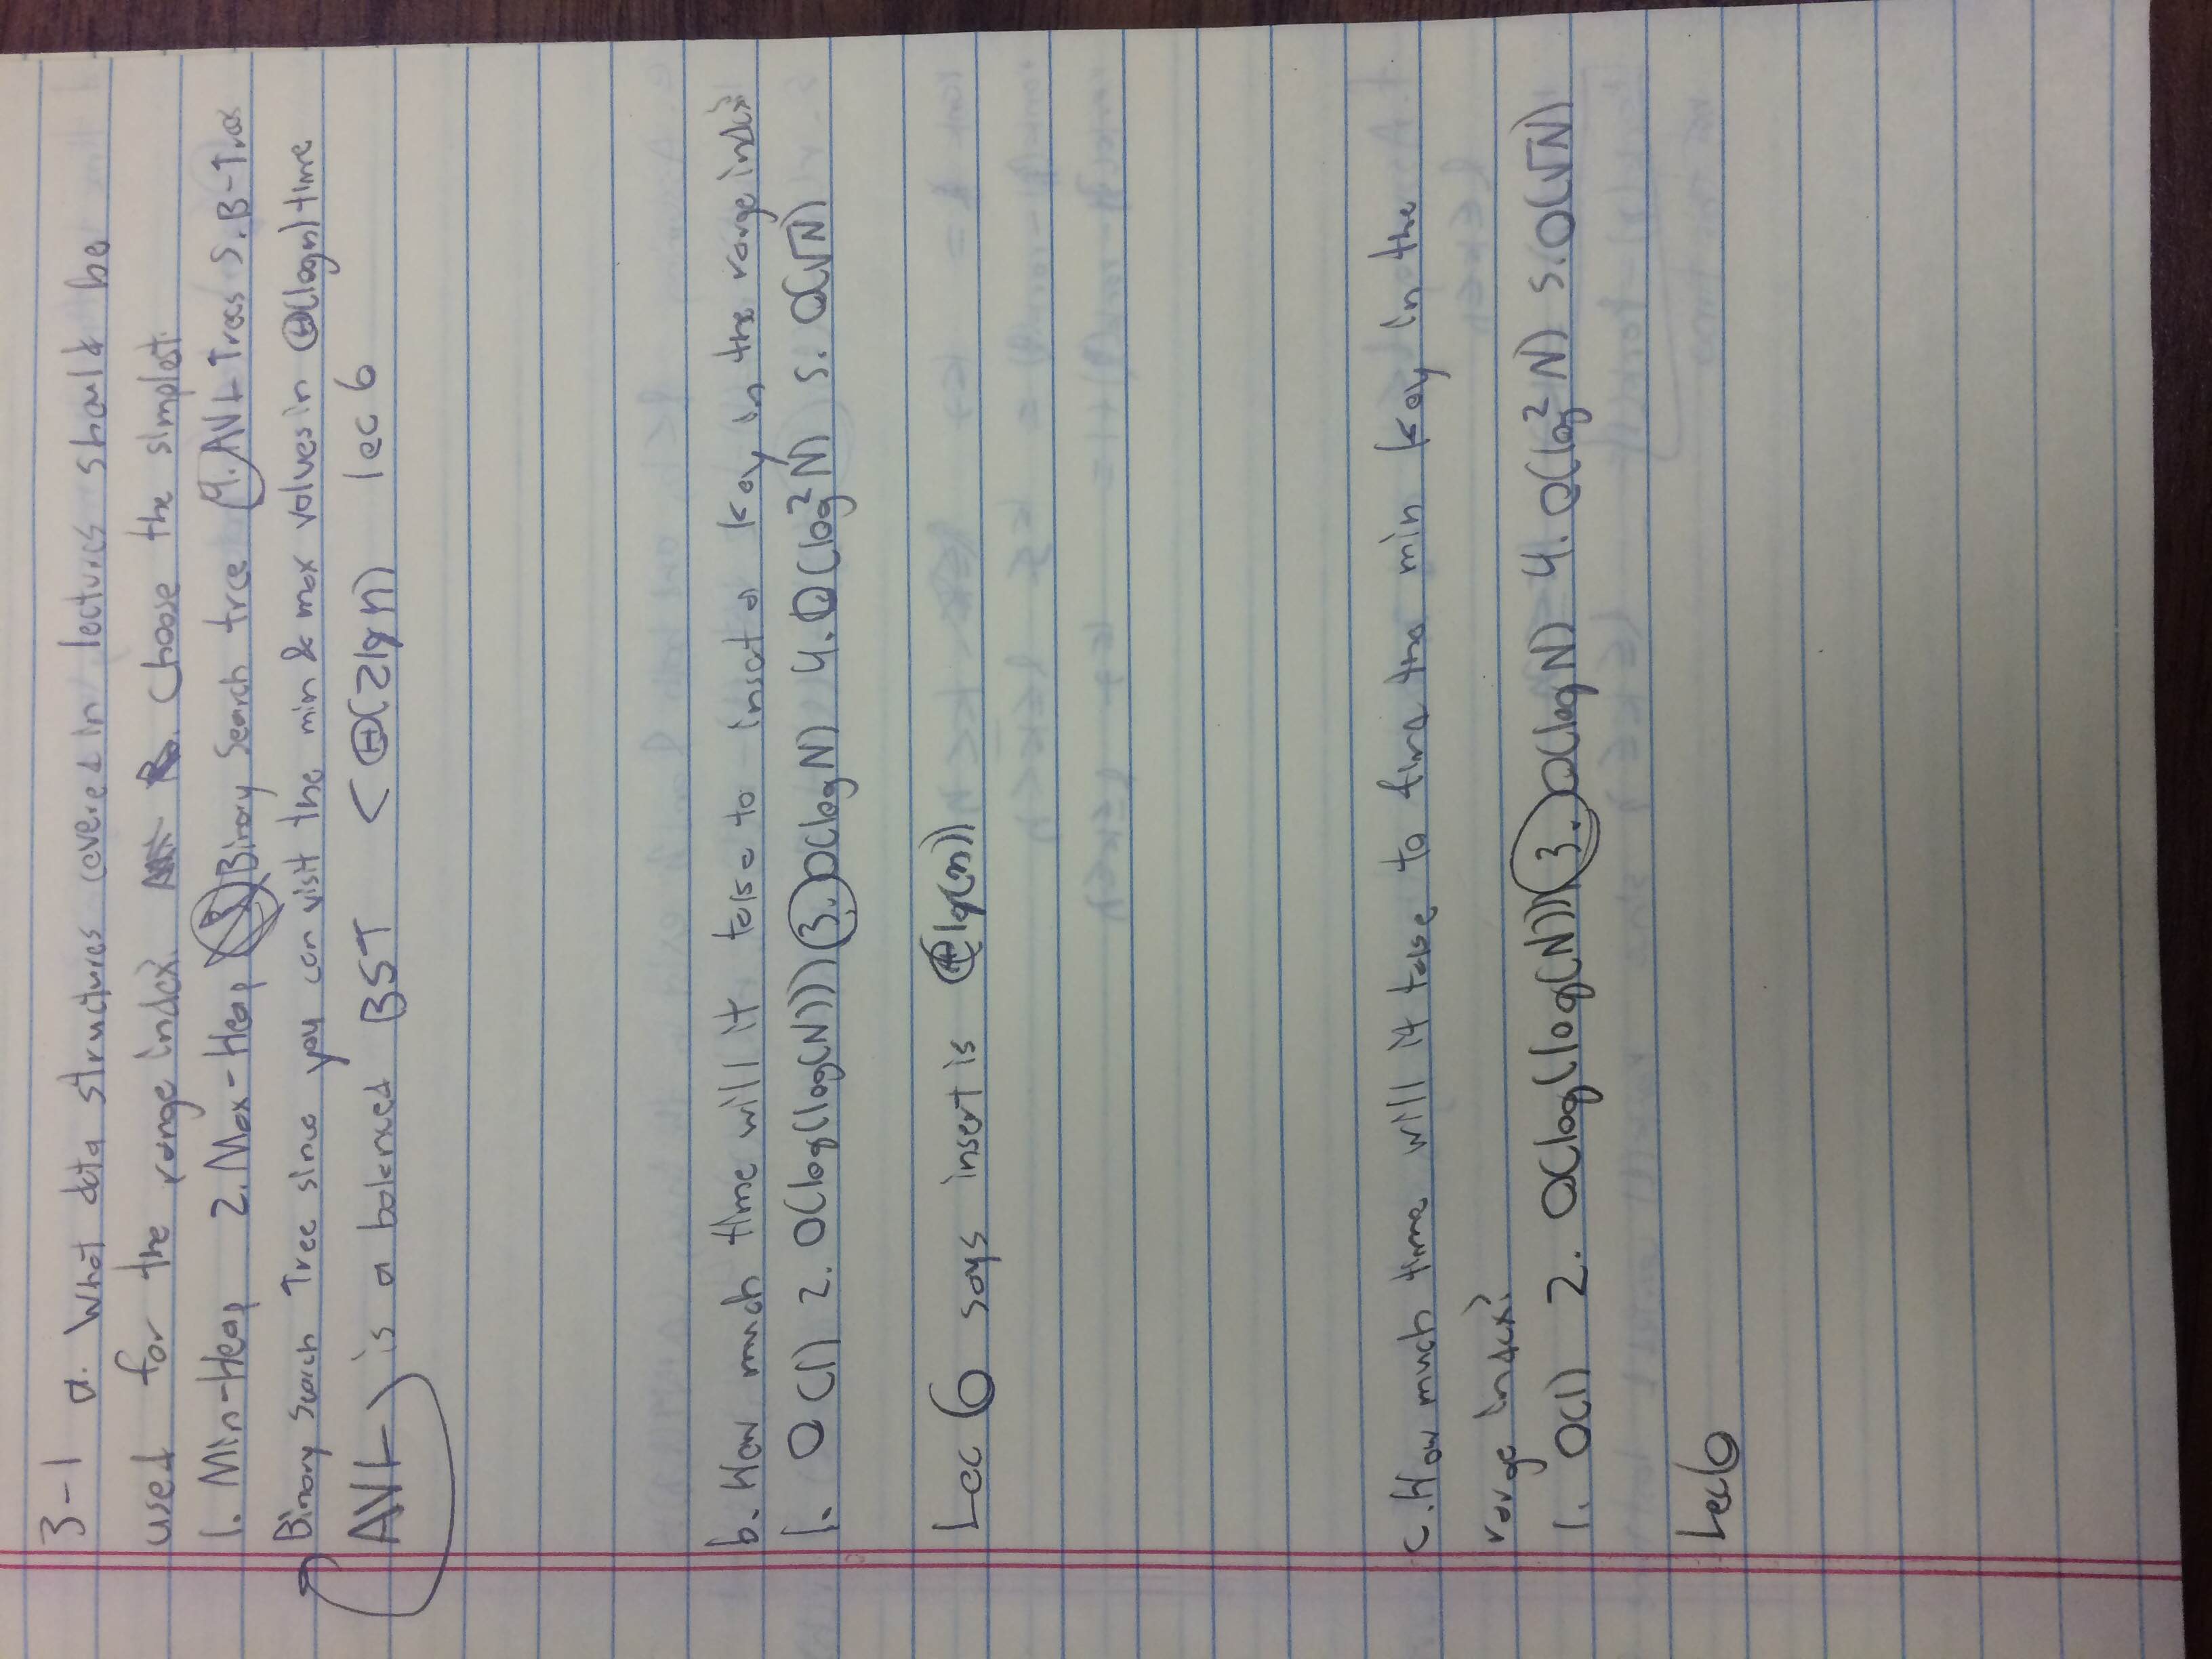 3-1 a. What data structures covered in lectures should be
used for the range index? Choose the simplest.
1. Min-Heap 2. Max-Heap 3. Binary Search tree 4. AVL Trees 5. B-Trees
Binary Search Tree since you can visit the min & max values in Θ(logn) time
AVL is a balanced BST < Θ(2lgn) lec 6
b. How much time will it take to insert a key in the range index?
1. O(1) 2. O(log(log(N))) 3. O(logN) 4. O(log²N) 5. O(√N)
Lec 6 says insert is Θ(lg(n))
c. How much time will it take to find the min key in the
range index?
1. O(1) 2. O(log(log(N)) 3. O(logN) 4. O(log²N) 5. O(√N)
Lec6